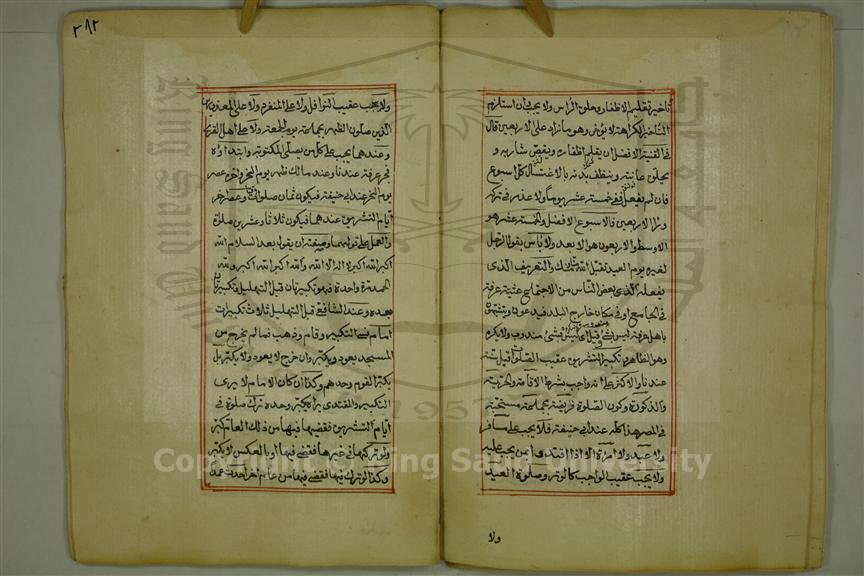 تأخير تقليم الاظفار وحلق الرأس ولا يجب ان استلزم
التأخير الكراهة لا يؤخر وهو ما زاد على الاربعين قال
في القنية الافضل ان يقلم اظفاره ويقص شاربه و
يحلق عانته وينظف بدنه بالاغتسال كل اسبوع
فان لم يفعل ففي خمسة عشر يوما ولا عذر في تركه
وراء الاربعين فالاسبوع الافضل والخمسة عشر هو
الاوسط والاربعون هو الابعد ولا بأس بقول الرجل
لغيره يوم العيد تقبل الله منا ومنك والتعريف الذي
يفعله بعض الناس من الاجتماع عشية عرفة
في الجامع او في مكان خارج البلد فيدعون ويتشبهون
باهل عرفة ليس بشئ قيل اي ليس بشئ مندوب ولا يكره
وهو الظاهر تكبير التشريق عقيب الصلوة قيل سنة
عندنا والاكثر على انه واجب بشرط الاقامة والحرية
والذكورة وكون الصلوة فريضة بجماعة مستحبة
في المصر هذا كله عند ابي حنيفة فلا يجب على مسافر
ولا عبد ولا امرأة الا اذا اقتدوا بمن يجب عليه
ولا يجب عقيب الواجب كالوتر وصلوة العيد
ولا
٢٨٢
ولا يجب عقيب النوافل ولا على المنفرد ولا على المعذورين
الذين صلون الظهر بجماعة يوم الجمعة ولا على اهل القرى
وعندهما يجب على كل من يصلي المكتوبة وابتداؤه
فجر عرفة عندنا وعند مالك ظهر يوم النحر واخره عصر
يوم النحر عند ابي حنيفة فيكون ثمان صلوات وعصر اخر
ايام التشريق عندهما فيكون ثلاثا وعشرين صلوة
والعمل على قولهما وصفته ان يقول بعد السلام الله
اكبر الله اكبر لا اله الا الله والله اكبر الله اكبر ولله
الحمد مرة واحدة فهو تكبيرتان قبل التهليل وتكبيرتان
بعده وعند الشافعي قبل التهليل ثلاث تكبيرات
امام نسي التكبير وقام وذهب فما لم يخرج من
المسجد يعود ويكبر وان خرج لا يعود ولا يكبر بل
يكبر القوم وحدهم وكذا ان كان الامام لا يرى
التكبير والمقتدي يراه يكبر وحده ترك صلوة في
ايام التشريق فقضيها فيها من ذلك العام كبر
ولو تركها في غيرها فقضى فيها او بالعكس لا يكبر
وكذا لو ترك فيها فقضى فيها من عام اخر احدث عمدا
Copyright © King Saud University
1957